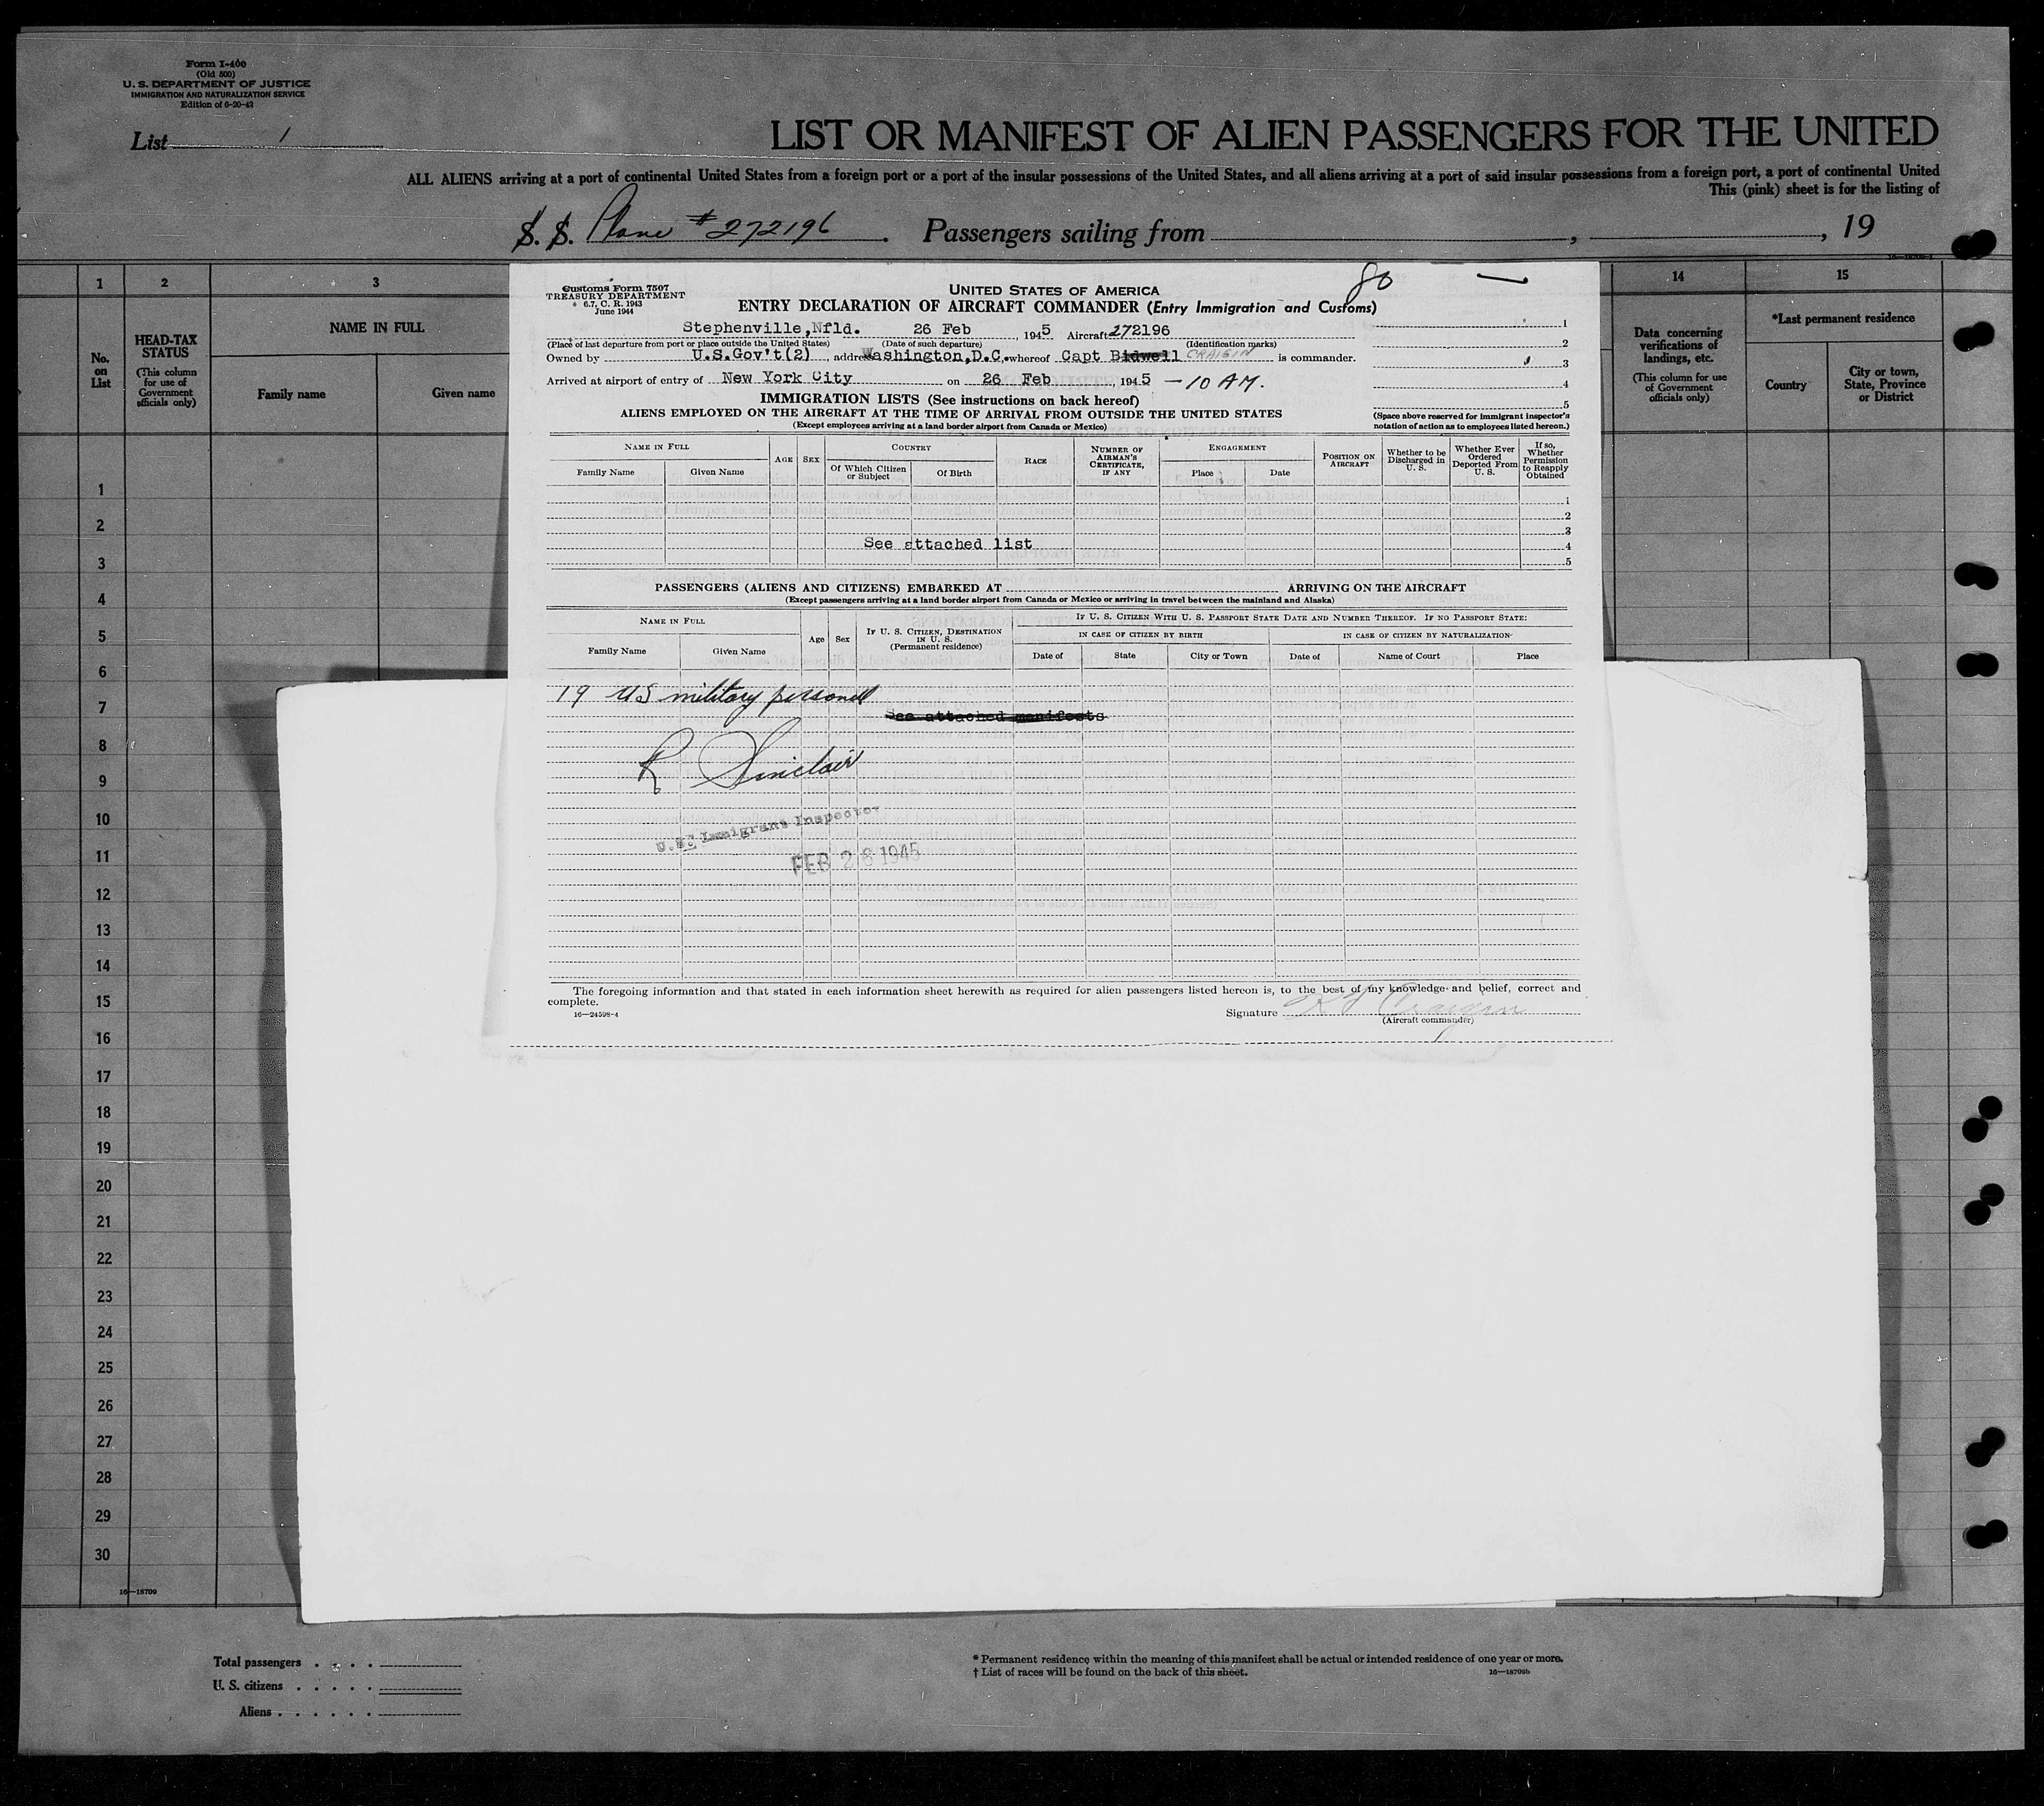 Form I-400
(Old 500)
U. S. DEPARTMENT OF JUSTICE
IMMIGRATION AND NATURALIZATION SERVICE
Edition of 6-20-42
List 1
LIST OR MANIFEST OF ALIEN PASSENGERS FOR THE UNITED
ALL ALIENS arriving at a port of continental United States from a foreign port or a port of the insular possessions of the United States, and all aliens arriving at a port of said insular possessions from a foreign port, a port of continental United
This (pink) sheet is for the listing of
S. S. Plane # 272196. Passengers sailing from , , 19
1 2 3 14 15
No. on List
HEAD-TAX STATUS
(This column for use of Government officials only)
NAME IN FULL
Family name Given name
Data concerning verifications of landings, etc.
(This column for use of Government officials only)
*Last permanent residence
Country City or town, State, Province or District
Customs Form 7507
TREASURY DEPARTMENT
6.7, C. R. 1943
June 1944
80
UNITED STATES OF AMERICA
ENTRY DECLARATION OF AIRCRAFT COMMANDER (Entry Immigration and Customs)
Stephenville, Nfld. 26 Feb , 1945 Aircraft 272196
(Place of last departure from port or place outside the United States) (Date of such departure) (Identification marks)
Owned by U.S.Gov't(2) , address Washington,D.C. whereof Capt Bidwell CRAIGIN is commander.
Arrived at airport of entry of New York City on 26 Feb , 1945 - 10 AM.
1
2
3
4
5
(Space above reserved for immigrant inspector's notation of action as to employees listed hereon.)
IMMIGRATION LISTS (See instructions on back hereof)
ALIENS EMPLOYED ON THE AIRCRAFT AT THE TIME OF ARRIVAL FROM OUTSIDE THE UNITED STATES
(Except employees arriving at a land border airport from Canada or Mexico)
NAME IN FULL AGE SEX COUNTRY RACE NUMBER OF AIRMAN'S CERTIFICATE, IF ANY ENGAGEMENT POSITION ON AIRCRAFT Whether to be Discharged in U. S. Whether Ever Ordered Deported From U. S. If so, Whether Permission to Reapply Obtained
Family Name Given Name Of Which Citizen or Subject Of Birth Place Date
1
2
3
See attached list
4
5
PASSENGERS (ALIENS AND CITIZENS) EMBARKED AT ARRIVING ON THE AIRCRAFT
(Except passengers arriving at a land border airport from Canada or Mexico or arriving in travel between the mainland and Alaska)
NAME IN FULL Age Sex IF U. S. CITIZEN, DESTINATION IN U. S. (Permanent residence) IF U. S. CITIZEN WITH U. S. PASSPORT STATE DATE AND NUMBER THEREOF. IF NO PASSPORT STATE:
IN CASE OF CITIZEN BY BIRTH IN CASE OF CITIZEN BY NATURALIZATION
Family Name Given Name Date of State City or Town Date of Name of Court Place
19 US military personell
See attached manifests
R Sinclair
U.S. Immigrant Inspector
FEB 26 1945
The foregoing information and that stated in each information sheet herewith as required for alien passengers listed hereon is, to the best of my knowledge and belief, correct and
complete.
16—24598-4
Signature
(Aircraft commander)
1
2
3
4
5
6
7
8
9
10
11
12
13
14
15
16
17
18
19
20
21
22
23
24
25
26
27
28
29
30
16—18709
Total passengers
U. S. citizens
Aliens
* Permanent residence within the meaning of this manifest shall be actual or intended residence of one year or more.
† List of races will be found on the back of this sheet. 16—18709b